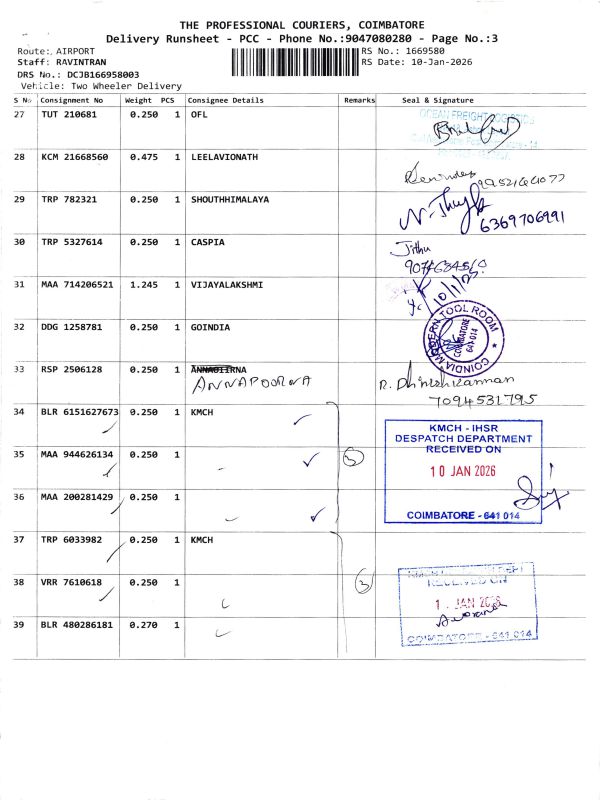 THE PROFESSIONAL COURIERS, COIMBATORE
Delivery Runsheet - PCC - Phone No.:9047080280 - Page No.:3
Route: AIRPORT
RS No.: 1669580
Staff: RAVINTRAN
RS Date: 10-Jan-2026
DRS No.: DCJB166958003
Vehicle: Two Wheeler Delivery
S No Consignment No Weight PCS Consignee Details Remarks Seal & Signature
27 TUT 210681 0.250 1 OFL
OCEAN FREIGHT LOGISTICS
28 KCM 21668560 0.475 1 LEELAVIONATH
29 TRP 782321 0.250 1 SHOUTHHIMALAYA
6369706991
30 TRP 5327614 0.250 1 CASPIA
Jithu
31 MAA 714206521 1.245 1 VIJAYALAKSHMI
32 DDG 1258781 0.250 1 GOINDIA
COINDIA MODERN TOOL ROOM
COIMBATORE
641 014
33 RSP 2506128 0.250 1
ANNAPOORNA
R. Dhineshkannan
7094531795
34 BLR 6151627673 0.250 1 KMCH
KMCH - IHSR
DESPATCH DEPARTMENT
RECEIVED ON
35 MAA 944626134 0.250 1 3
10 JAN 2026
36 MAA 200281429 0.250 1
COIMBATORE - 641 014
37 TRP 6033982 0.250 1 KMCH
38 VRR 7610618 0.250 1 3
RECEIVED ON
JAN 2026
39 BLR 480286181 0.270 1
COIMBATORE - 641 014